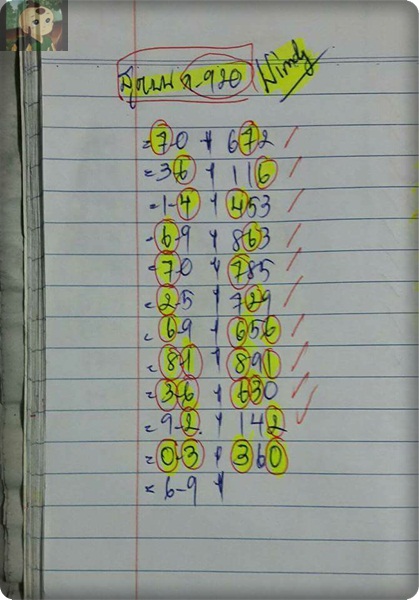 สูตรบน ว-920 Nindy
= 7-0 + 672
= 36 + 116
= 1-4 + 453
= 6-9 + 863
= 70 + 785
= 2-5 + 729
= 69 + 656
= 8-1 + 891
= 3-6 + 630
= 9-2 + 142
= 0-3 + 360
= 6-9 +